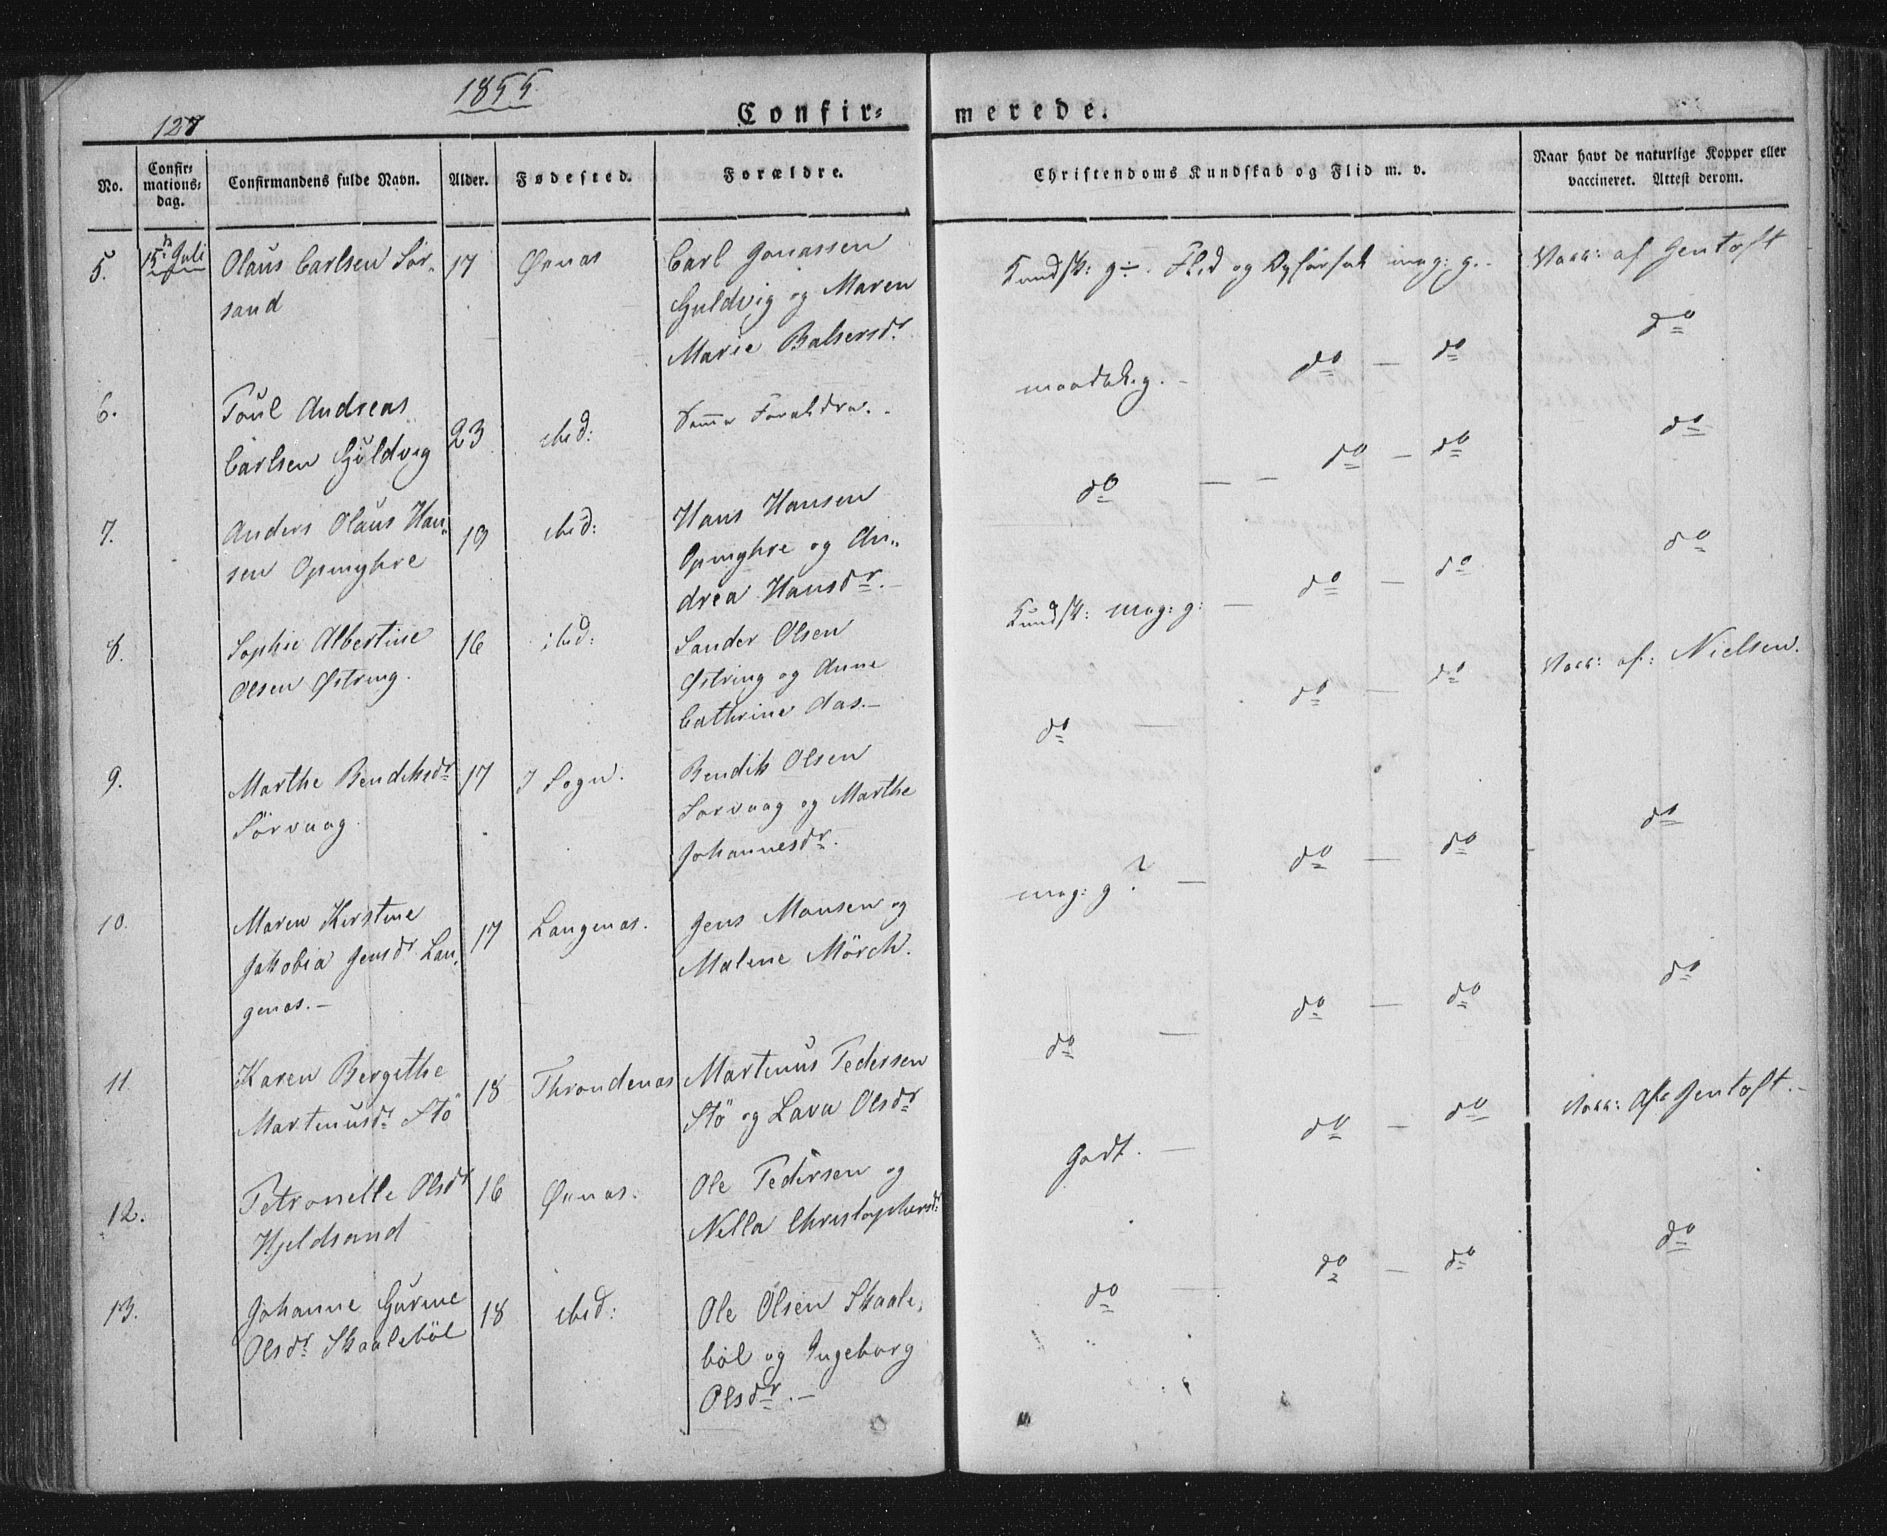 1855
127
Confir-
merede.
No.
Confir-
mations-
dag.
Confirmandens fulde Navn.
Alder.
Fødested.
Forældre.
Christendoms Kundskab og Flid m. v.
Naar havt de naturlige Kopper eller
vaccineret. Attest derom.
5.
15de Juli
Olaus Carlsen Sør-
sand
17
Øxnæs
Carl Jonassen
Guldvig og Maren
Marie Balsersdr.
Kundsk: g÷. Flid og Opførsel mag: g.
Vacc: af Gentoft
6.
Poul Andreas
Carlsen Guldvig
23
ibid:
Samme Forældre.
maadel. g. - do — do
do
7.
Anders Olaus Han-
sen Opmyhre
19
ibid:
Hans Hansen
Opmyhre og An-
drea Hansdr. —
do — - do — do
do
8.
Sophie Albertine
Olsen Østring.
16
ibid:
Sander Olsen
Østring og Anne
Cathrine das. —
Kundsk: mag: g: — do — do
do
9.
Marthe Bendiksdr
Sörvaag.
17
I Sogn.
Bendik Olsen
Sörvaag og Marthe
Johannesdr.
do — do — do
Vacc: af: Nielsen.
10.
Maren Kirstine
Jakobia Jensdr Lan-
genæs. —
17
Langenæs.
Jens Monsen og
Malene Mörch.
mag: g? — do — do
do
11.
Karen Bergithe
Martinusdr Stö
18
Throndenæs
Martinus Pedersen
Stö og Lava Olsdr
do — do — do
do
12.
Petronelle Olsdr
Kjeldsand
16
Øxnæs.
Ole Pedersen og
Nella Christophersdr
Godt. — do — do
Vacc: af Gentoft. —
13.
Johanne Gurine
Olsdr Skaaleböl
18
ibid:
Ole Olsen Skaale-
böl og Ingeborg
Olsdr. —
do — do — do
do